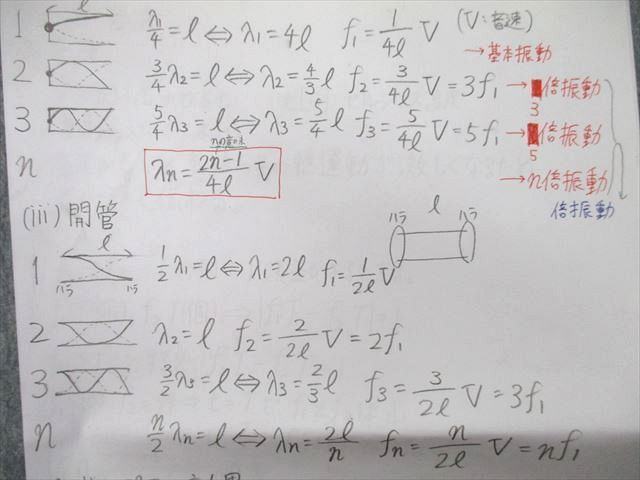 l
1 λ₁/4 = l ⇔ λ₁ = 4l f₁ = 1/4l V (V:音速)
→基本振動
2 3/4 λ₂ = l ⇔ λ₂ = 4/3 l f₂ = 3/4l V = 3f₁ → 倍振動
3
3 5/4 λ₃ = l ⇔ λ₃ = 5/4 l f₃ = 5/4l V = 5f₁ → 倍振動
5
n λn = 2n-1/4l V → n倍振動
倍振動
(iii) 開管
l
l
ハラ ハラ
1 1/2 λ₁ = l ⇔ λ₁ = 2l f₁ = 1/2l V
ハラ ハラ
2 λ₂ = l f₂ = 2/2l V = 2f₁
3 3/2 λ₃ = l ⇔ λ₃ = 2/3 l f₃ = 3/2l V = 3f₁
n n/2 λn = l ⇔ λn = 2l/n fn = n/2l V = nf₁